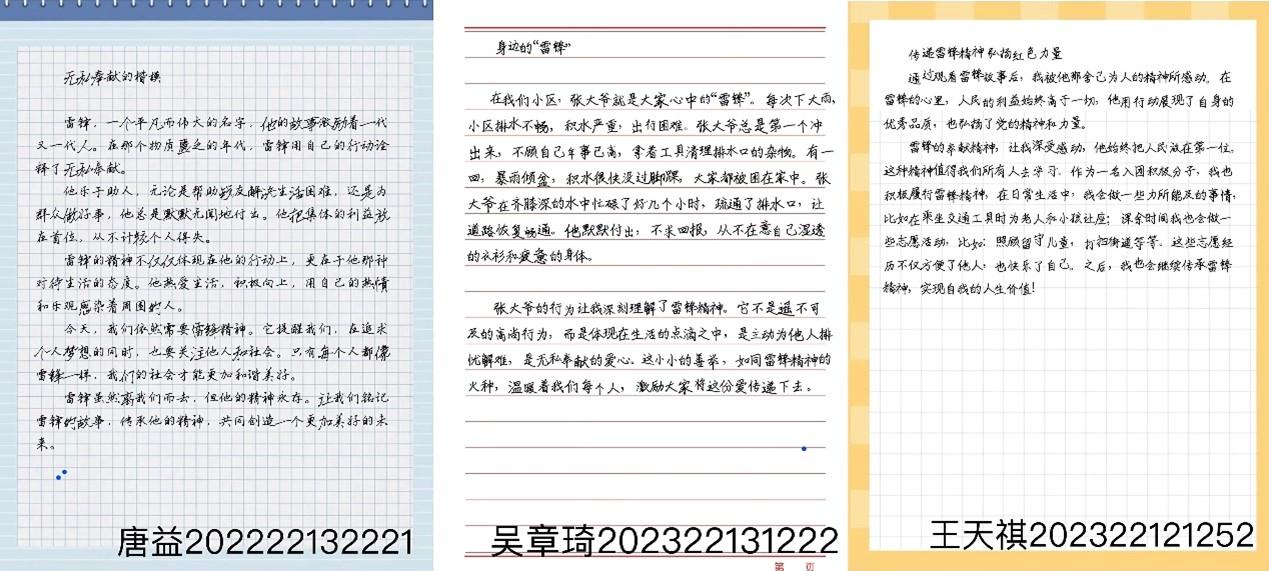 无私奉献的楷模
雷锋，一个平凡而伟大的名字，他的故事激励着一代
又一代人。在那个物质匮乏的年代，雷锋用自己的行动诠
释了无私奉献。
他乐于助人，无论是帮助战友解决生活困难，还是为
群众做好事，他总是默默无闻地付出。他把集体的利益放
在首位，从不计较个人得失。
雷锋的精神不仅仅体现在他的行动上，更在于他那种
对待生活的态度。他热爱生活，积极向上，用自己的热情
和乐观感染着周围的人。
今天，我们依然需要雷锋精神。它提醒我们，在追求
个人梦想的同时，也要关注他人和社会。只有每个人都像
雷锋一样，我们的社会才能更加和谐美好。
雷锋虽然离我们而去，但他的精神永存。让我们铭记
雷锋的故事，传承他的精神，共同创造一个更加美好的未
来。
唐益202222132221
身边的“雷锋”
在我们小区，张大爷就是大家心中的“雷锋”。每次下大雨，
小区排水不畅，积水严重，出行困难。张大爷总是第一个冲
出来，不顾自己年事已高，拿着工具清理排水口的杂物。有一
回，暴雨倾盆，积水很快没过脚踝，大家都被困在家中。张
大爷在齐膝深的水中忙碌了好几个小时，疏通了排水口，让
道路恢复畅通。他默默付出，不求回报，从不在意自己湿透
的衣衫和疲惫的身体。
张大爷的行为让我深刻理解了雷锋精神。它不是遥不可
及的高尚行为，而是体现在生活的点滴之中，是主动为他人排
忧解难，是无私奉献的爱心。这小小的善举，如同雷锋精神的
火种，温暖着我们每个人，激励大家将这份爱传递下去。
吴章琦202322131222
第 页
传递雷锋精神弘扬红色力量
通过观看雷锋故事后，我被他那舍己为人的精神所感动。在
雷锋的心里，人民的利益始终高于一切，他用行动展现了自身的
优秀品质，也弘扬了党的精神和力量。
雷锋的奉献精神，让我深受感动，他始终把人民放在第一位，
这种精神值得我们所有人去学习。作为一名入团积极分子，我也
积极履行雷锋精神，在日常生活中，我会做一些力所能及的事情，
比如在乘坐交通工具时为老人和小孩让座；课余时间我也会做一
些志愿活动，比如：照顾留守儿童，打扫街道等等。这些志愿经
历不仅方便了他人，也快乐了自己。之后，我也会继续传承雷锋
精神，实现自我的人生价值！
王天祺202322121252